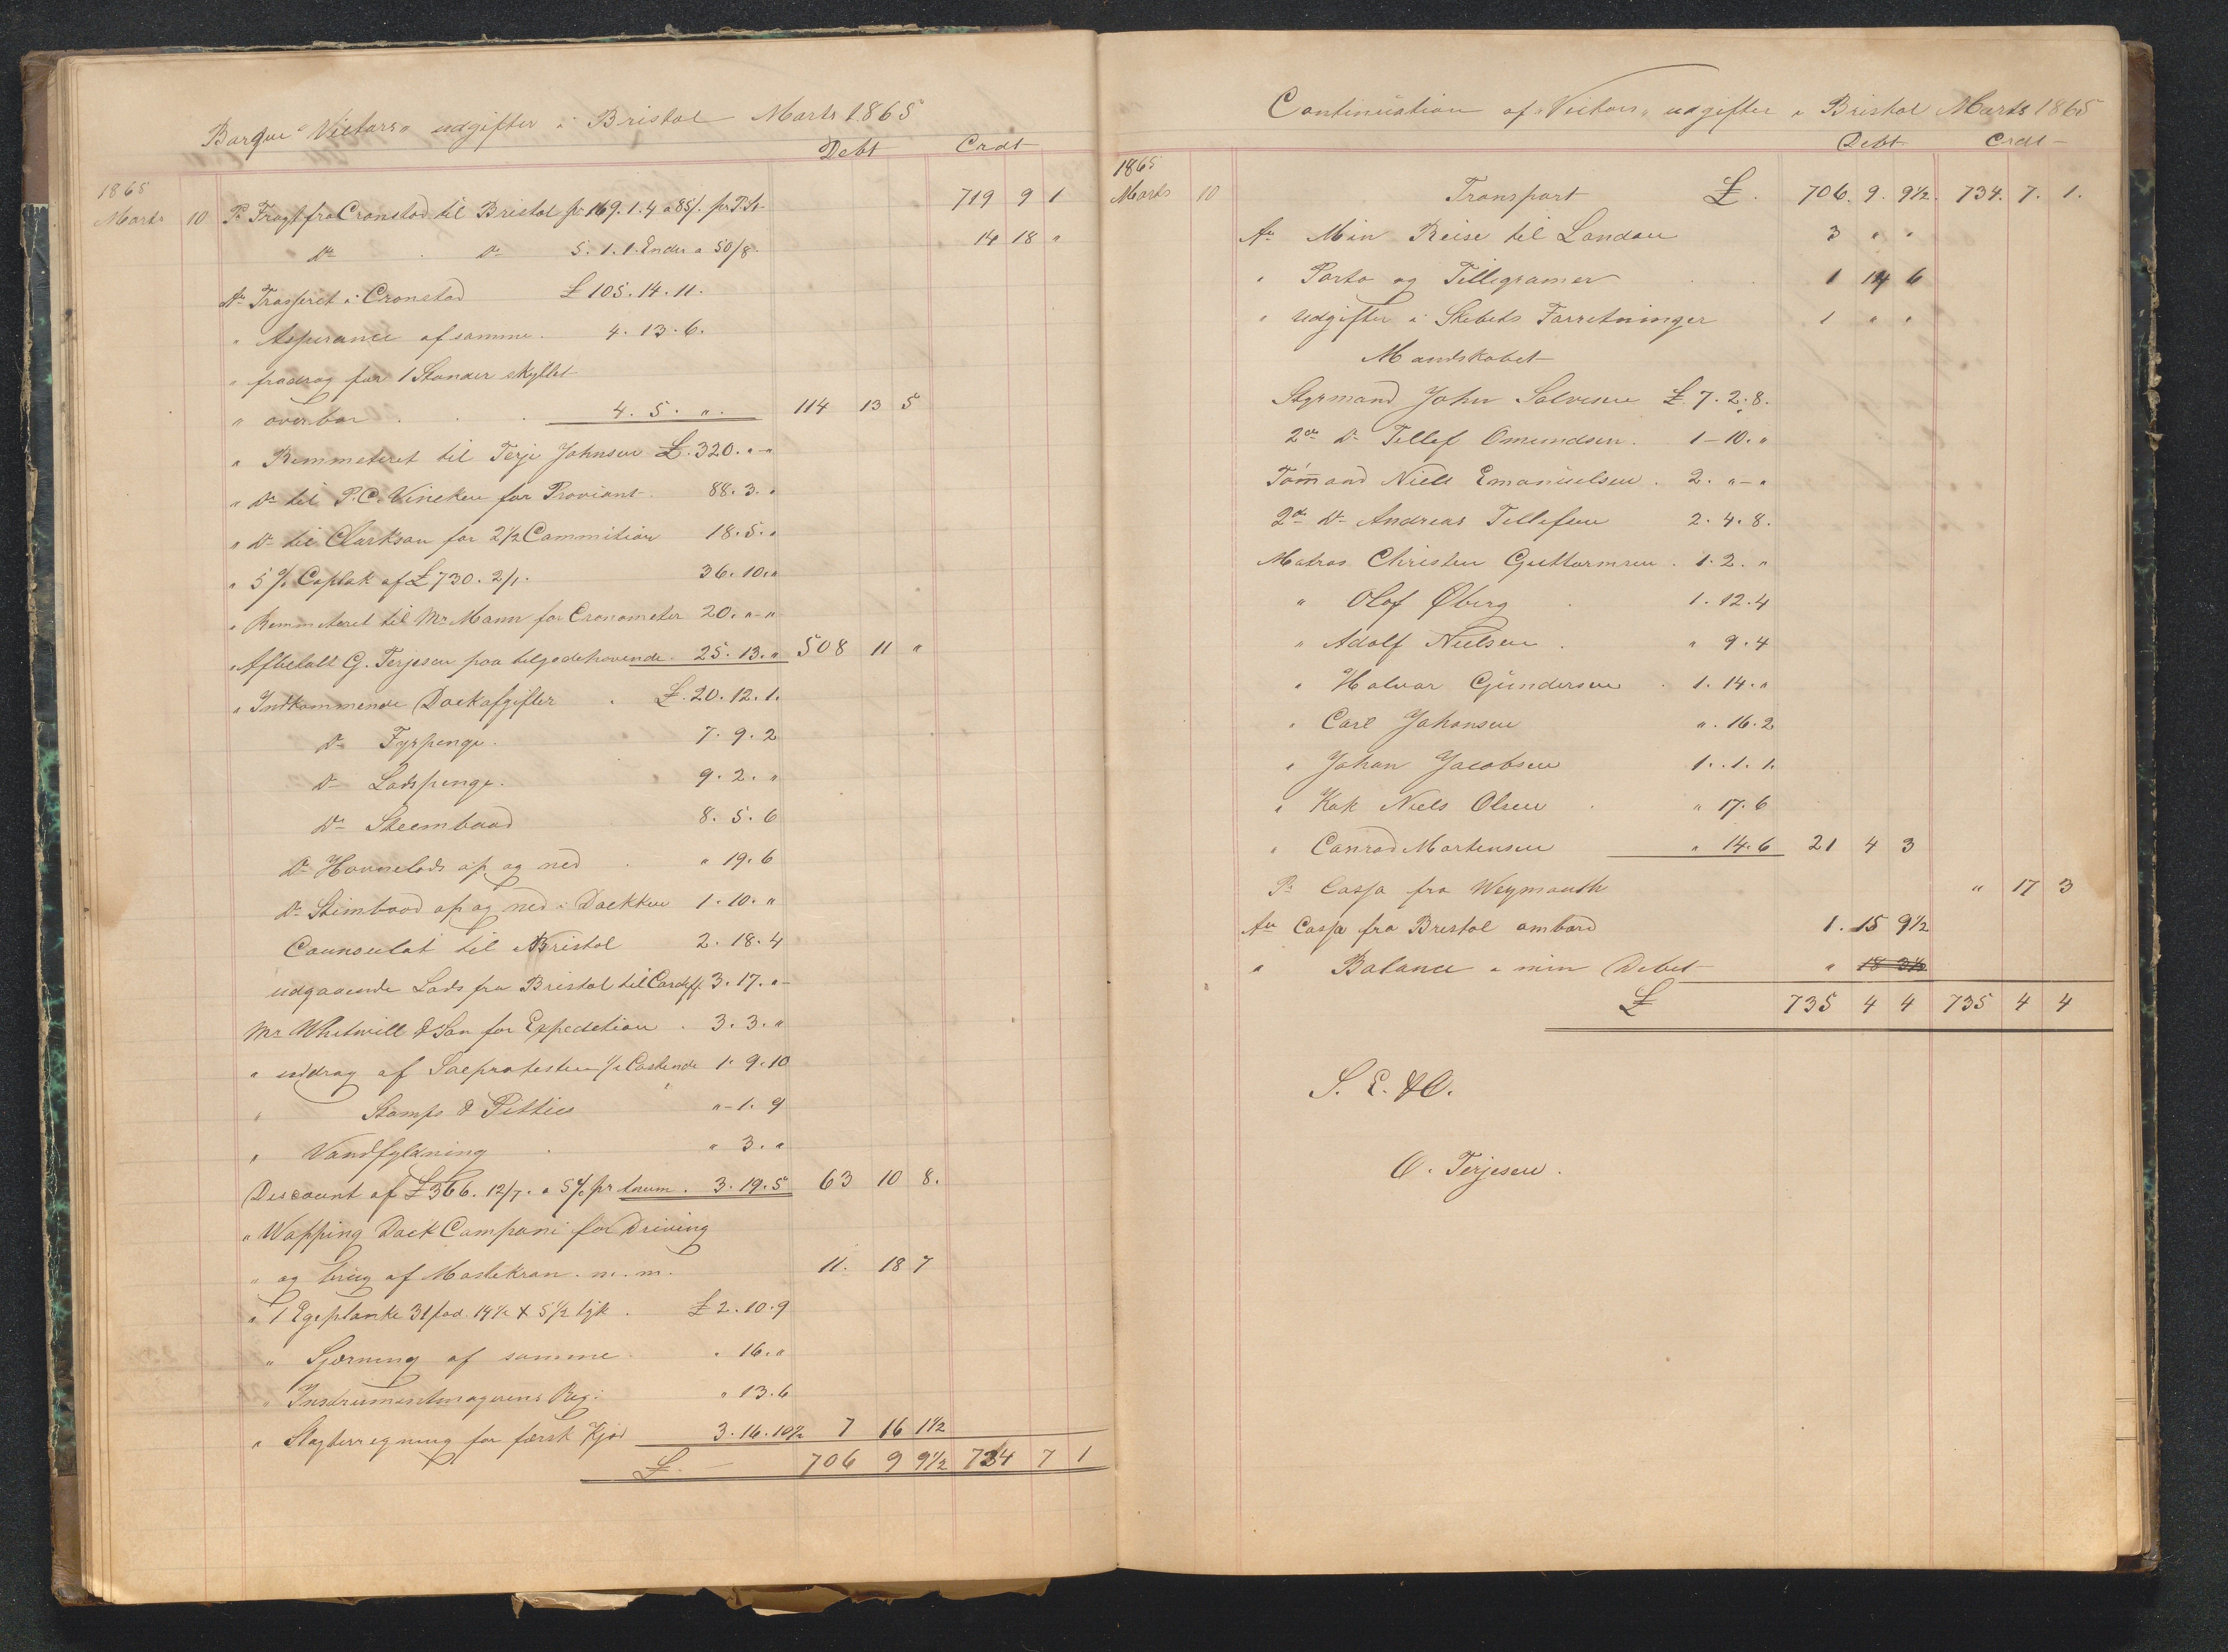 Barque "Victors" udgifter i Bristol Marts 1865
Debt Crdt
1865
Marts 10 Pr Fragt fra Cronstad til Bristol pr 169.1.4 a 85/. pr P. St 719 9 1
Do . Do 5.1.1. Ender a 50/8. 14 18 "
An Trasseret i Cronstad £ 105.14.11.
" Assurance af samme. 4.13.6.
" fradrag for 1 Stander skyllet
" overbor . . 4.5.". 114 13 5
" Remmeteret til Terje Johnsen £.320."-"
" Do til P.C. Vineken for Proviant. 88.3."
" Do til Clarkson for 2½ Commition 18.5."
" 5 % Caplak af £730.2/1. 36.10."
" Remmeteret til Mr Mann for Cronometer 20."-"
" Afbetalt G. Terjesen paa tilgodehavende. 25.13." 508 11 "
" Indkommende Dockafgifter . £.20.12.1.
Do Fyrpenge. 7.9.2
Do Lodspenge. 9.2."
Do Steembaad 8.5.6
Do Havnelods op og ned . " 19.6
Do Stimbaad op og ned i Dockken 1.10."
Counsulat til Bristol 2.18.4
udgaaende Lods fra Bristol til Cardiff 3.17."-
Mr Whitwill & San for Expedition . 3.3."
" uddrag af Søeprotesten 1/2 Costende 1.9.10
" Stamps & Pitties "-1.9
" Vandfyldning . " 3."
Discount af £366.12/7. a 5% pr Anum. 3.19.5 63 10 8.
" Wapping Dock Campani for Driving
" og brug af Mastekran. m.m. 11. 18 7
" 1 Egeplanke 31 fod 14½ X 5½ tyk . £ 2.10.9
" Sjørning af samme " 16."
" Instrumentmagerens Reg: " 13.6
" Slagterregning for færsk Kjød 3.16.10½ 7 16 1½
£.— 706 9 9½ 734 7 1
Continuation af "Victors" udgifter i Bristol Marts 1865
Debt Crdt-
1865
Marts 10 Transport £. 706.9.9½. 734.7.1.
An Min Reise til London 3 " "
" Porto og Tillegramer 1 14 6
" Udgifter i Skibets Forretninger 1 " "
Mandskabet
Styrmand John Salvesen £ 7.2.8.
2den Do Tellef Omundsen. 1-10."
Tømmand Niels Emanuelsen . 2."-"
2den Do Andreas Tellefsen 2.4.8.
Matros Christen Guttormsen . 1.2."
" Olof Øberg . 1.12.4
" Adolf Nielsen . " 9.4
" Halvar Gundersen . 1.14."
" Carl Johansen ".16.2
" Johan Jacobsen 1..1.1.
" Kok Niels Olsen . " 17.6
" Conrad Mortensen " 14.6 21 4 3
Pr Cassa fra Weymouth " 17 3
An Cassa fra Bristol ombord 1. 15 9½
" Balance i min Debet " 18 3½
£ 735 4 4 735 4 4
S. E. & O.
O. Terjesen.